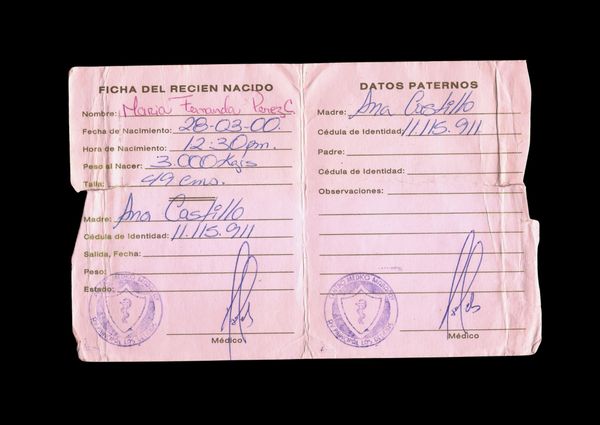 FICHA DEL RECIEN NACIDO
Nombre: Maria Fernanda Perez C.
Fecha de Nacimiento: 28-03-00.
Hora de Nacimiento: 12:30pm.
Peso al Nacer: 3.000 Kgs
Talla: 49 cms.
Madre: Ana Castillo
Cédula de Identidad: 11.115.911
Salida, Fecha:
Peso:
Estado:
Médico
DATOS PATERNOS
Madre: Ana Castillo
Cédula de Identidad: 11.115.911
Padre:
Cédula de Identidad:
Observaciones:
Médico